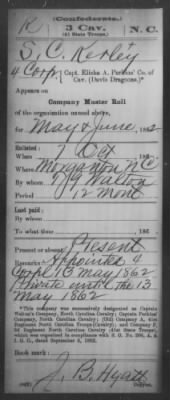 (Confederate.)
K 3 Cav. N.C.
(41 State Troops.)
S. C. Kerley
4 Corp, Capt. Elisha A. Perkins' Co. of
Cav. (Davis Dragoons).*
Appears on
Company Muster Roll
of the organization named above,
for May & June, 1862
Enlisted:
When 7 Oct, 186
Where Morganton N.C.
By whom Walton
Period 12 Mont
Last paid:
By whom
To what time , 186
Present or absent Present
Remarks: Appointed 4
Corpl 13 may 1862
Private until the 13
may 1862
*This company was successively designated as Captain
Walton's Company, North Carolina Cavalry; Captain Perkins'
Company, North Carolina Cavalry;
Book mark:
J. B. Hyatt